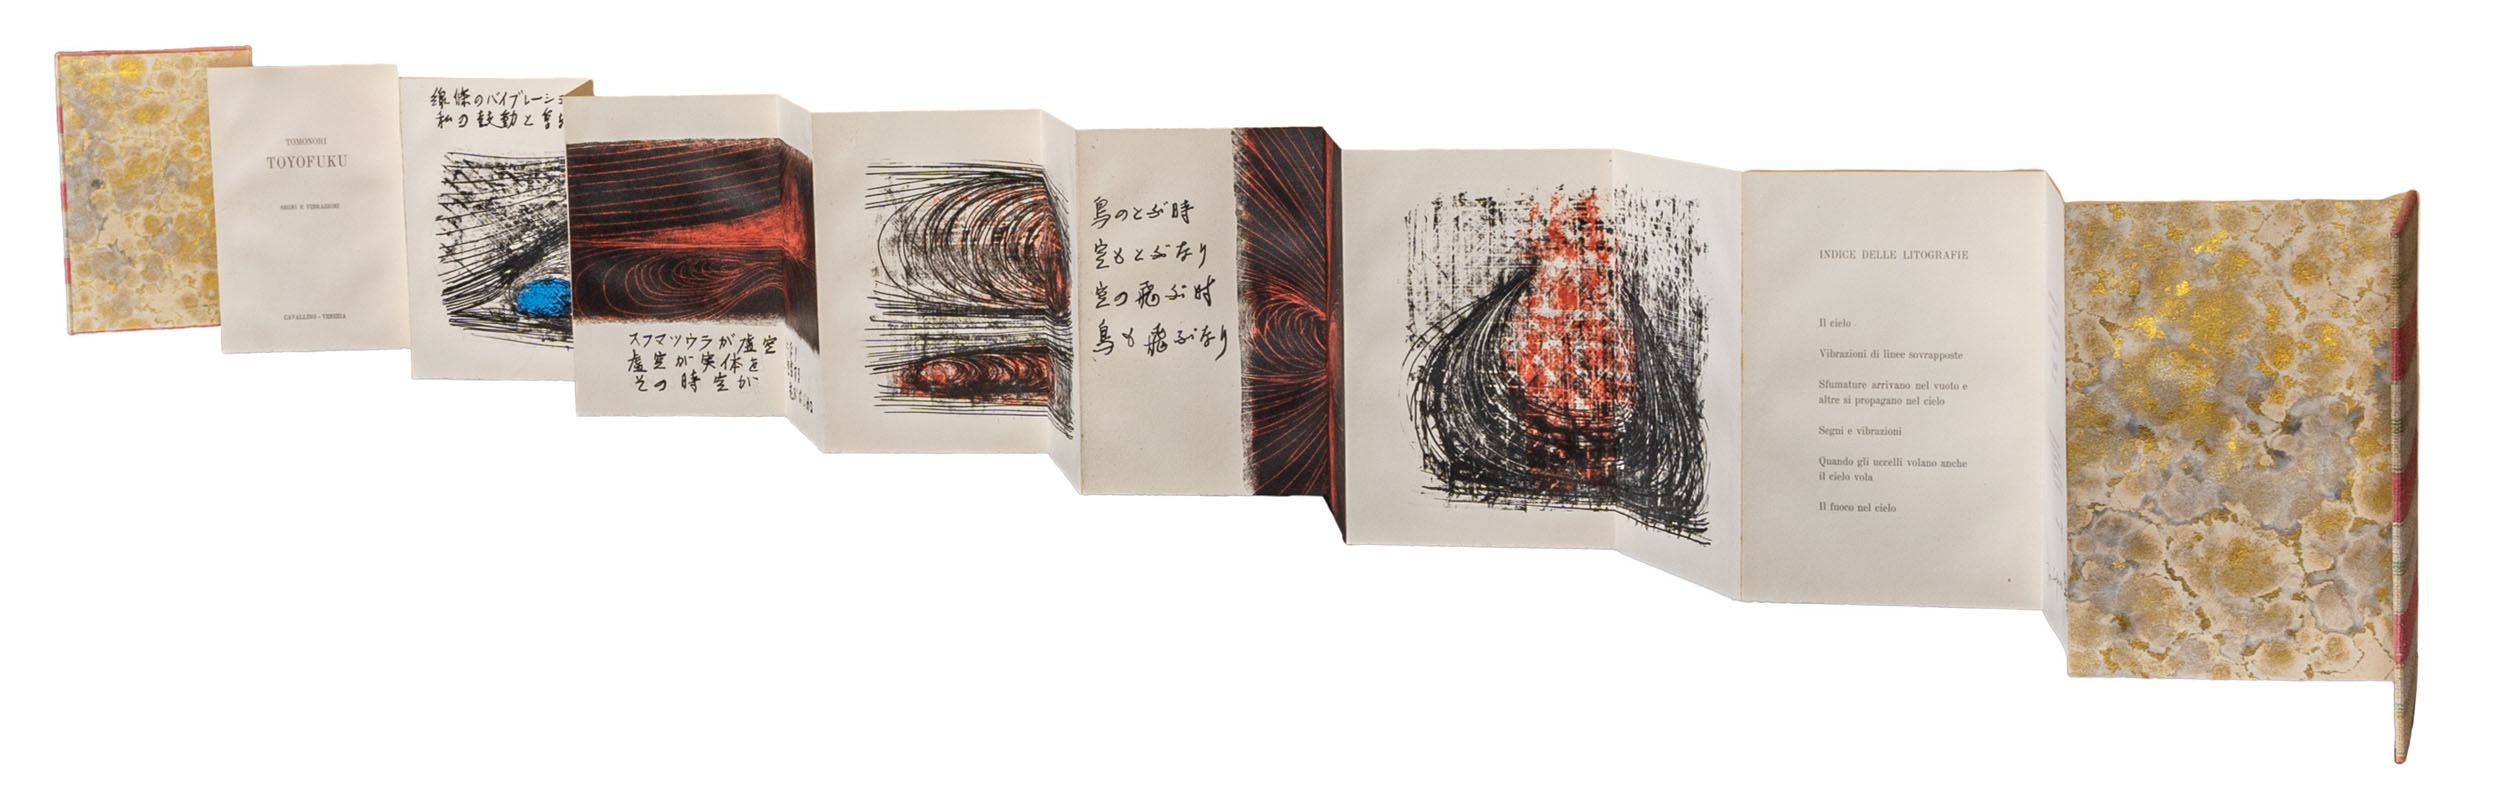 TOMONORI
TOYOFUKU
SEGNI E VIBRAZIONI
CAVALLINO - VENEZIA
線條のバイブレーショ
私の鼓動と
スフマツウラが虚空
虚空が実体を
その時空が
鳥のとぶ時
空もとぶなり
空の飛ぶ時
鳥も飛ぶなり
INDICE DELLE LITOGRAFIE
Il cielo
Vibrazioni di linee sovrapposte
Sfumature arrivano nel vuoto e
altre si propagano nel cielo
Segni e vibrazioni
Quando gli uccelli volano anche
il cielo vola
Il fuoco nel cielo